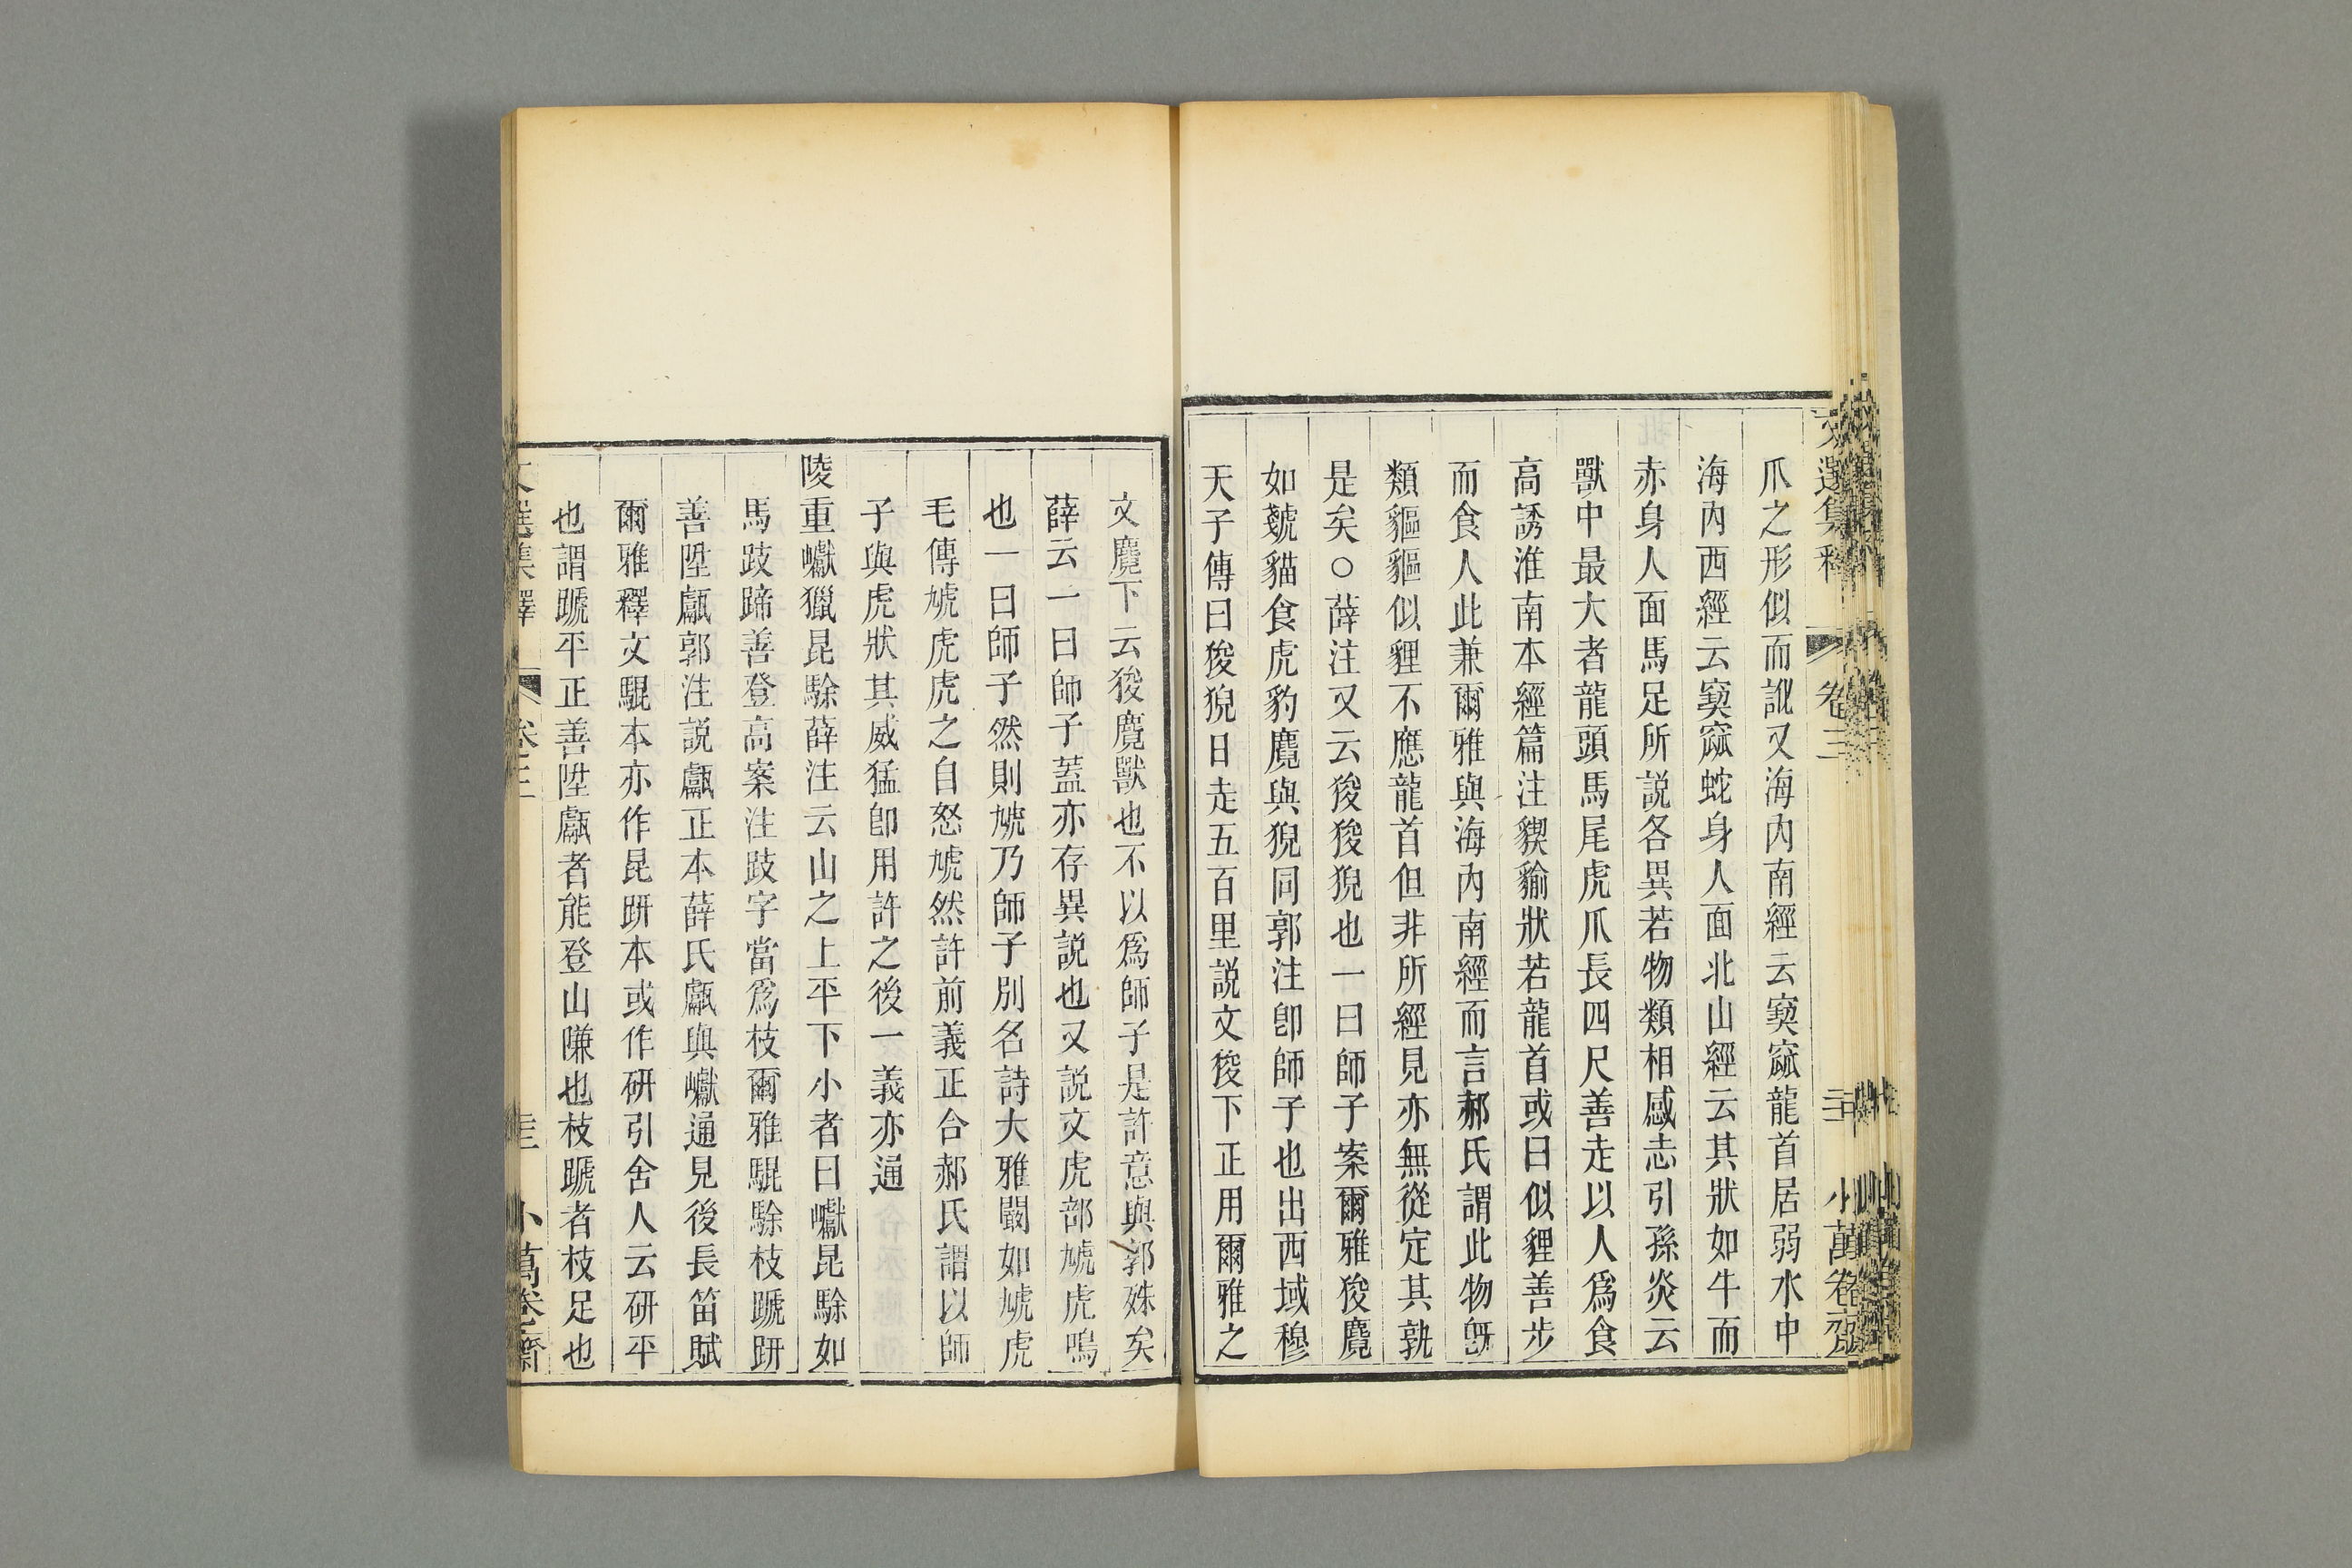 爪之形似而訛又海內南經云窫窳龍首居弱水中
海內西經云窫窳蛇身人面北山經云其狀如牛而
赤身人面馬足所説各異若物類相感志引孫炎云
獸中最大者龍頭馬尾虎爪長四尺善走以人爲食
高誘淮南本經篇注猰貐狀若龍首或曰似貍善步
而食人此兼爾雅與海內南經而言郝氏謂此物旣
類貙貙似貍不應龍首但非所經見亦無從定其孰
是矣○薛注又云狻狻猊也一曰師子案爾雅狻麑
如虦貓食虎豹麑與猊同郭注卽師子也出西域穆
天子傳曰狻猊日走五百里説文狻下正用爾雅之
文選集釋 卷三 小萬卷齋
文麑下云狻麑獸也不以爲師子是許意與郭姝矣
薛云一曰師子蓋亦存異説也又説文虎部虓虎鳴
也一曰師子然則虓乃師子別名詩大雅闞如虓虎
毛傳虓虎虎之自怒虓然許前義正合郝氏謂以師
子與虎狀其威猛卽用許之後一義亦通
陵重巘獵昆駼薛注云山之上平下小者曰巘昆駼如
馬跂蹄善登高案注跂字當爲枝爾雅騉駼枝蹏趼
善陞甗郭注説甗正本薛氏甗與巘通見後長笛賦
爾雅釋文騉本亦作昆趼本或作研引舍人云研平
也謂蹏平正善陞甗者能登山隒也枝蹏者枝足也
文選集釋 卷三 小萬卷齋